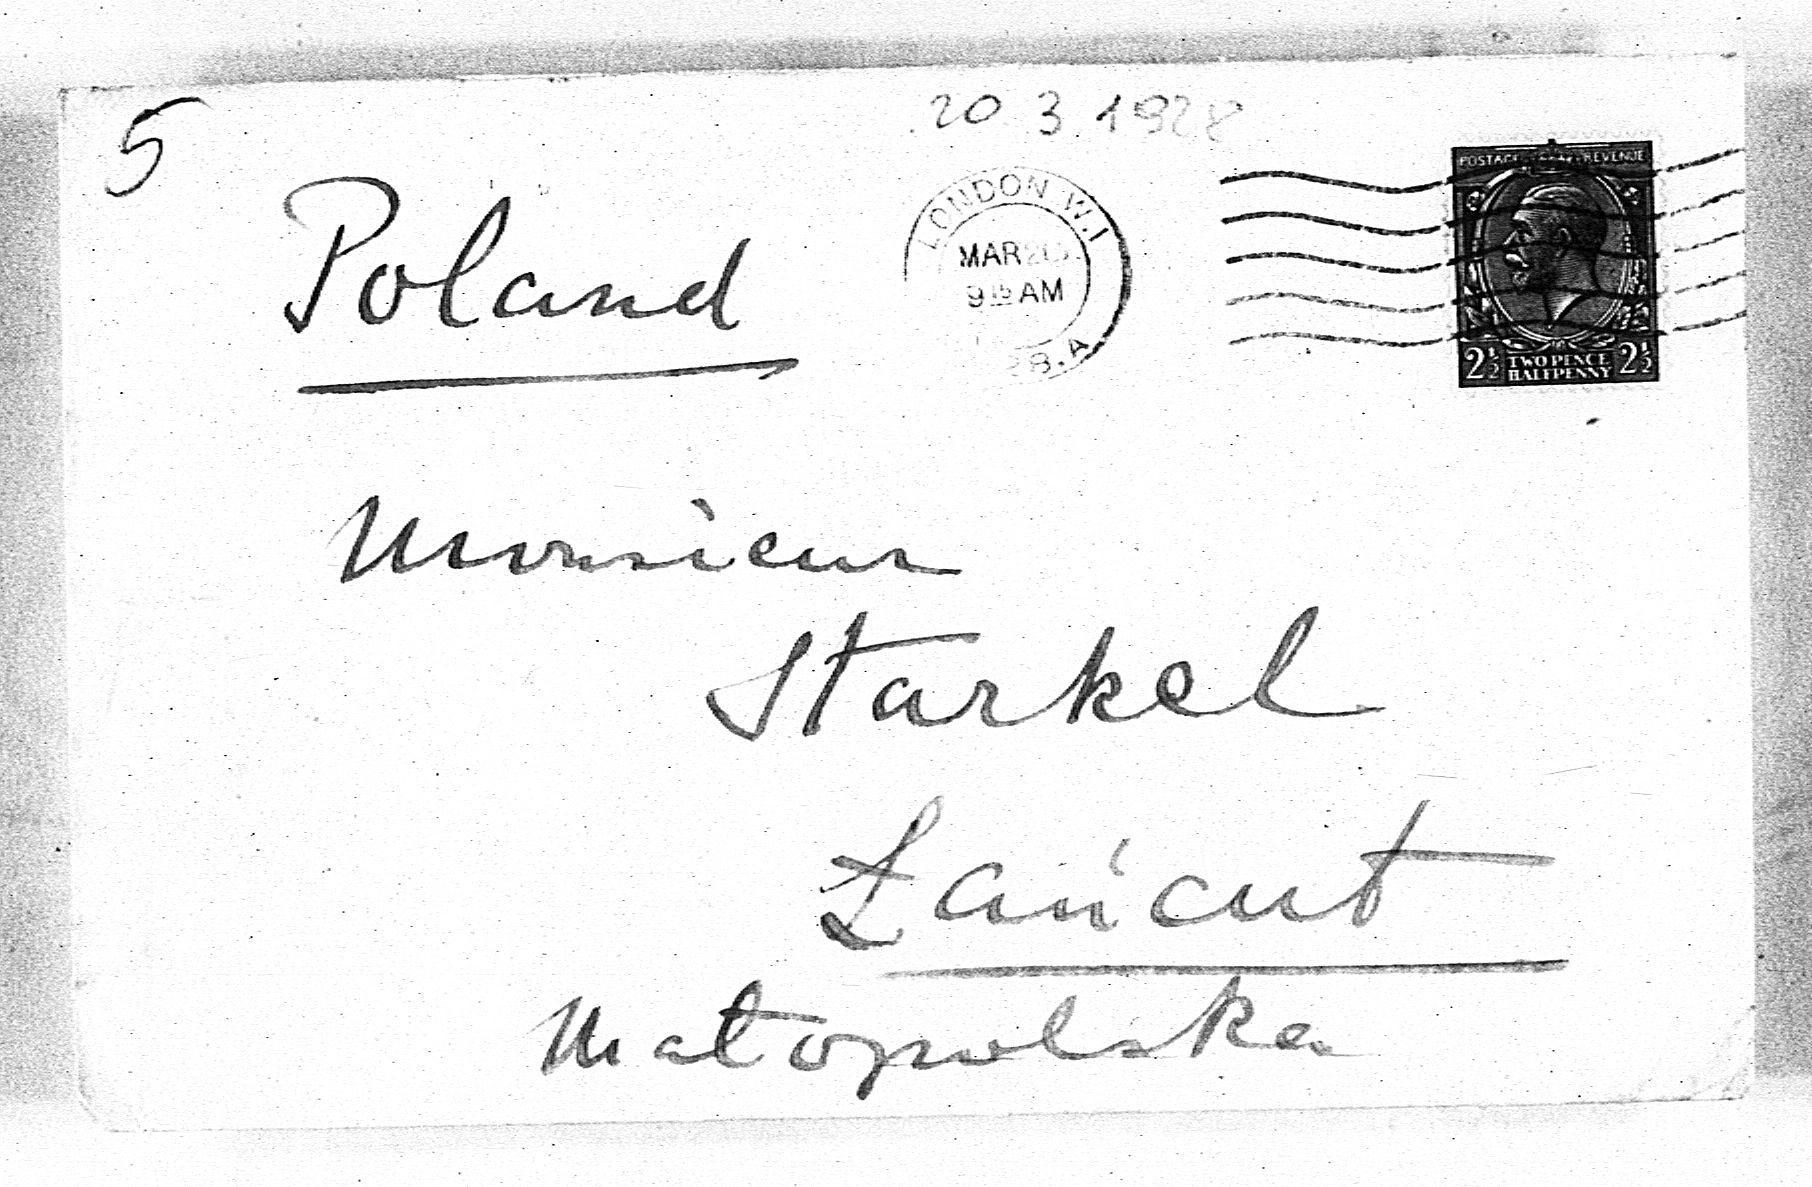 5
20 3 1928
Poland
LONDON W.1
MAR 20
9 15 AM
28.A
POSTAGE REVENUE
2½ TWO PENCE HALFPENNY 2½
Monsieur
Starkel
Łańcut
Małopolska